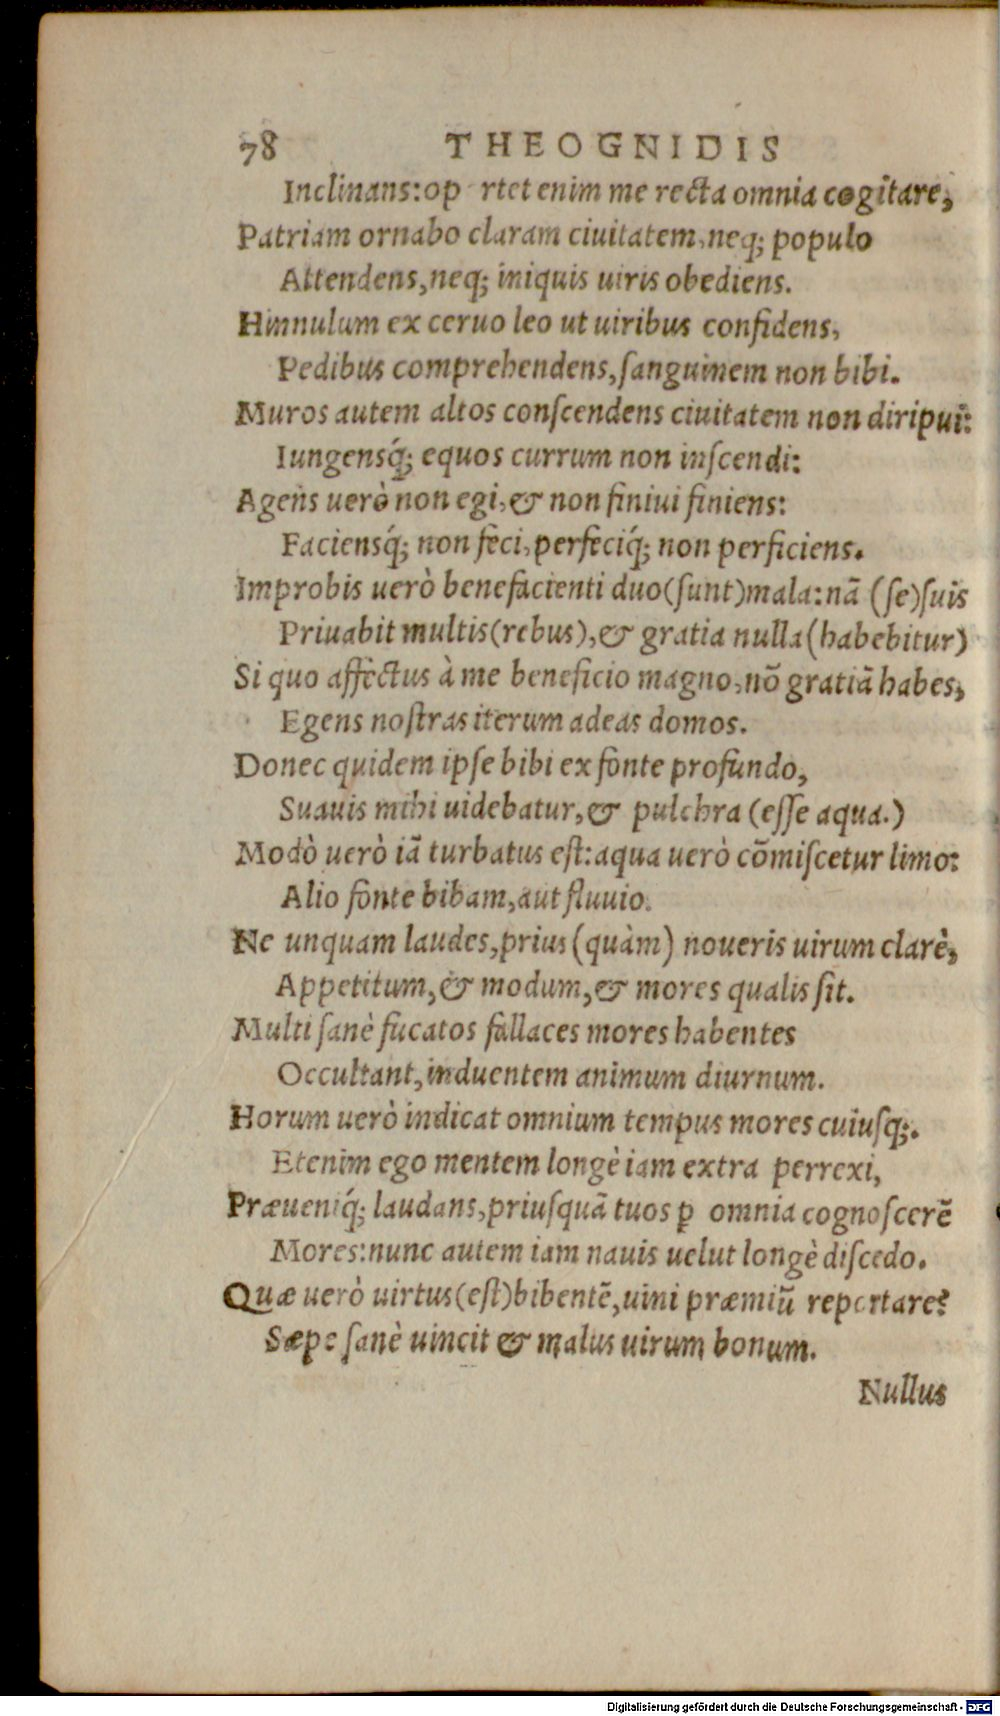 78 THEOGNIDIS
Inclinans:op rtet enim me recta omnia cogitare,
Patriam ornabo claram ciuitatem,neq; populo
Attendens,neq; iniquis uiris obediens.
Hinnulum ex ceruo leo ut uiribus confidens,
Pedibus comprehendens,sanguinem non bibi.
Muros autem altos conscendens ciuitatem non diripui:
Iungensq́; equos currum non inscendi:
Agens uerò non egi,& non finiui finiens:
Faciensq́; non feci,perfeciq́; non perficiens.
Improbis uerò benefacienti duo(sunt)mala:nã (se)suis
Priuabit multis(rebus),& gratia nulla(habebitur)
Si quo affectus à me beneficio magno,nõ gratiã habes,
Egens nostras iterum adeas domos.
Donec quidem ipse bibi ex fonte profundo,
Suauis mihi uidebatur,& pulchra (esse aqua.)
Modò uerò iã turbatus est:aqua uerò cõmiscetur limo:
Alio fonte bibam,aut fluuio.
Ne unquam laudes,prius(quàm) noueris uirum clarè,
Appetitum,& modum,& mores qualis sit.
Multi sanè fucatos fallaces mores habentes
Occultant,induentem animum diurnum.
Horum uerò indicat omnium tempus mores cuiusq;.
Etenim ego mentem longè iam extra perrexi,
Præueniq́; laudans,priusquã tuos ꝑ omnia cognoscerẽ
Mores:nunc autem iam nauis uelut longè discedo.
Quæ uerò uirtus(est)bibentẽ,uini præmiũ reportare?
Sæpe sanè uincit & malus uirum bonum.
Nullus
Digitalisierung gefördert durch die Deutsche Forschungsgemeinschaft - DFG